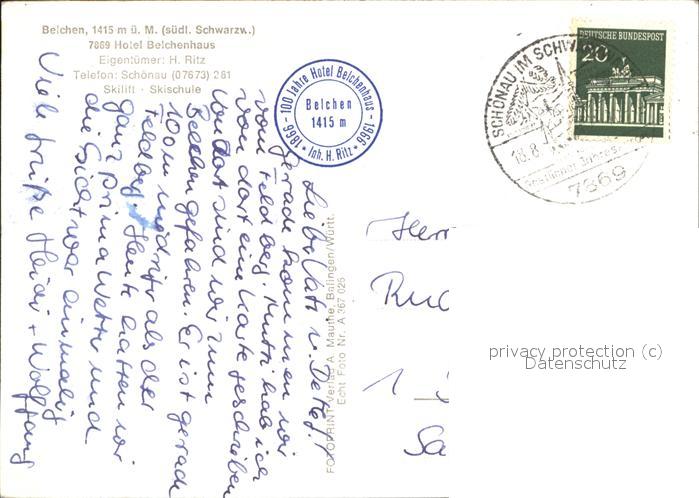 Belchen, 1415 m ü. M. (südl. Schwarzw.)
7869 Hotel Belchenhaus
Eigentümer: H. Ritz
Telefon: Schönau (07673) 281
Skilift · Skischule
100 Jahre Hotel Belchenhaus
1866 - 1966
Belchen
1415 m
Inh. H. Ritz
DEUTSCHE BUNDESPOST
20
SCHÖNAU IM SCHWARZW
18.8.
7869
Lieber Vati u. Detlef!
Gerade kommen wir
vom Feldberg. Mutti hab ich
von dort eine Karte geschrieben
Von dort sind wir zum
Belchen gefahren. Er ist gerade
100 m niedriger als der
Feldberg. Heute hatten wir
ganz prima Wetter und
die Sicht war einmalig
Viele Grüße Heidi + Wolfgang
FOTOPRINT-Verlag A. Mauthe, Balingen/Württ.
Echt Foto Nr. A 367 026
Herr
Rud
1
Sa
privacy protection (c)
Datenschutz